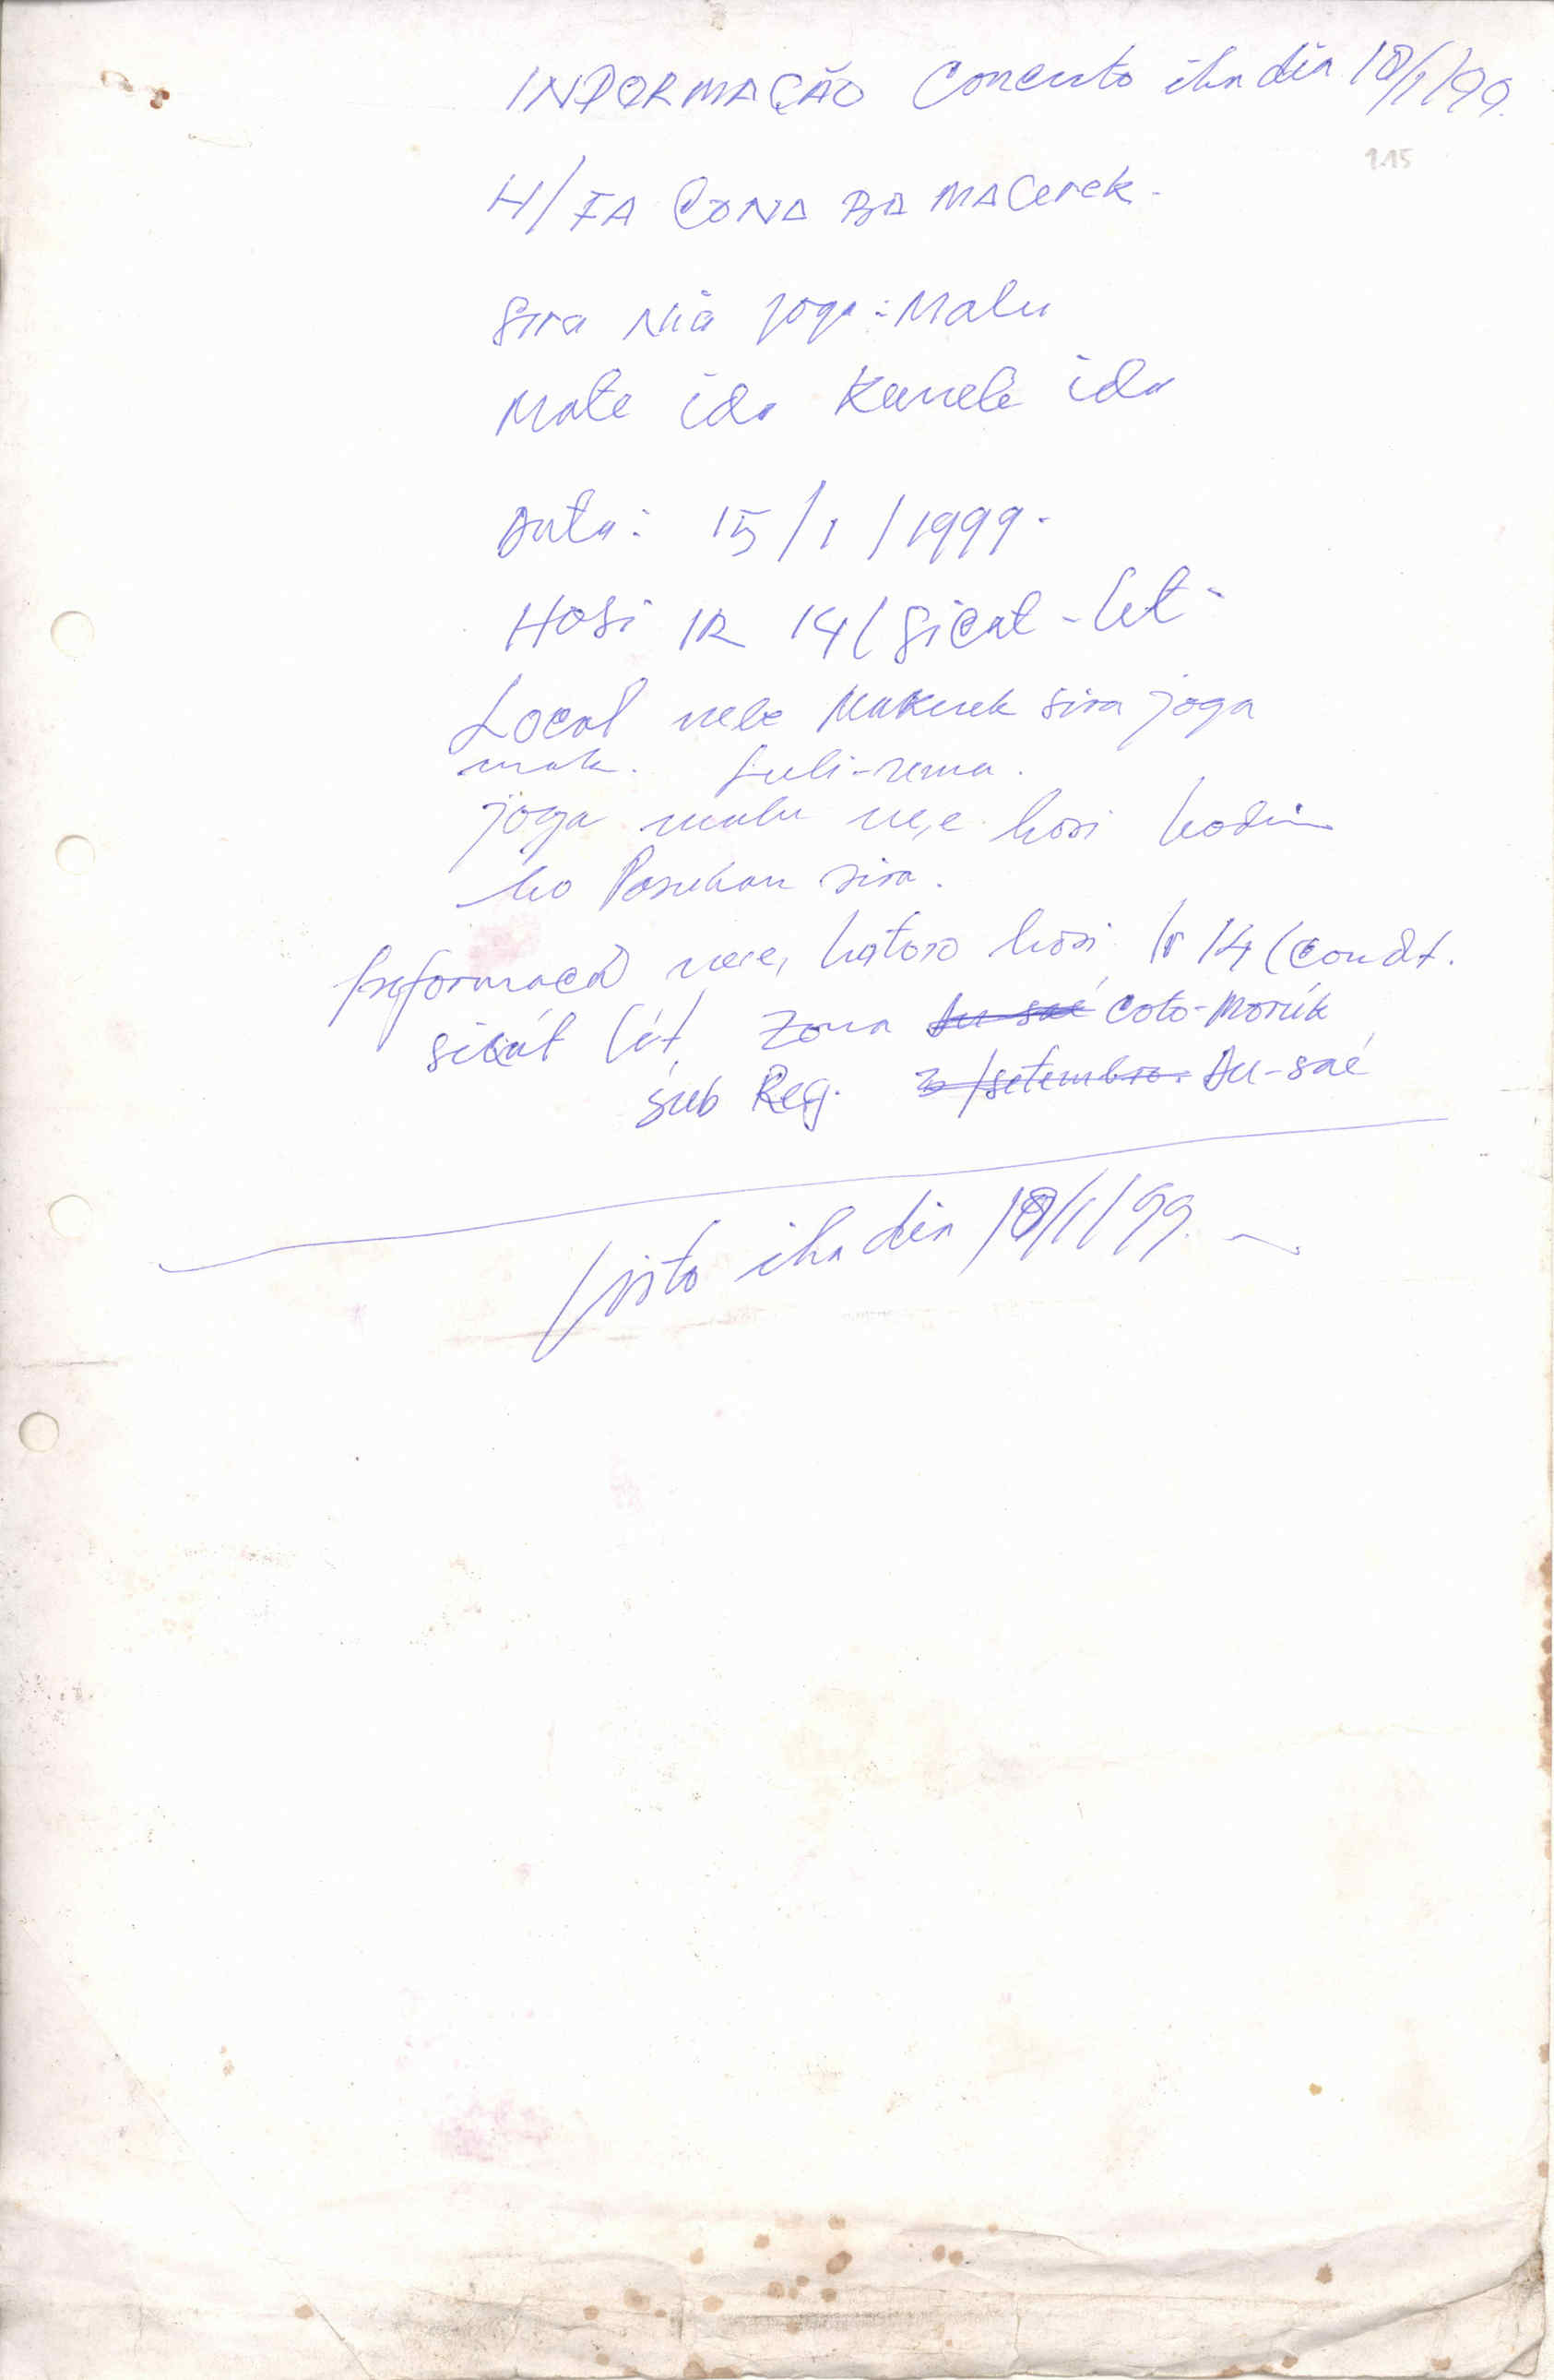 INFORMAÇÃO Concento iha dia 18/1/99.
9.15
H/FA CONA BA MACerek-
Sira Nia joga: Malu
Mate ida Kanek ida
Data: 15/1/1999.
HOSI IR 14 (Sicat-let-
Local nebe Makerek sira joga
mak. Luli-rema.
joga malu ne,e hosi hodi
ho Pasukan sira.
Informacã ne,e, hatoso hosi Ir 14 (Comdt.
sicát lét, Zona Au-saé Coto-Morúk
Sub Reg. 3/setembro. Au-saé
Visto iha dia 18/1/99.